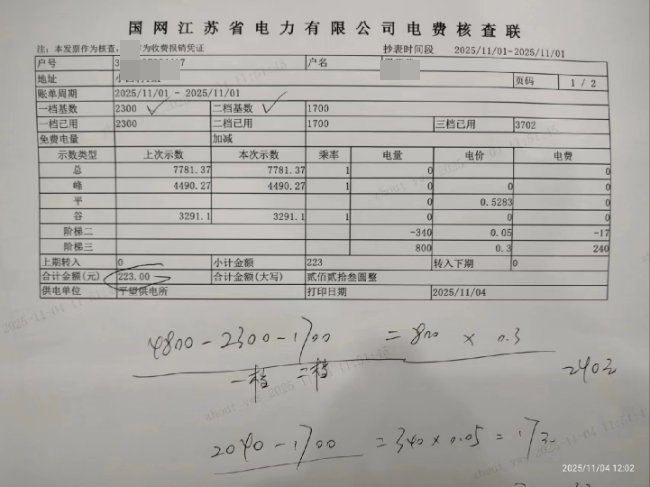 国网江苏省电力有限公司电费核查联
注: 本发票作为核查, 为收费报销凭证 抄表时间段 2025/11/01-2025/11/01
户号 户名
地址 页码 1 / 2
账单周期 2025/11/01 - 2025/11/01
一档基数 2300 二档基数 1700
一档已用 2300 二档已用 1700 三档已用 3702
免费电量 加减
示数类型 上次示数 本次示数 乘率 电量 电价 电费
总 7781.37 7781.37 1 0 0
峰 4490.27 4490.27 1 0 0 0
平 0 0.5283 0
谷 3291.1 3291.1 1 0 0 0
阶梯二 -340 0.05 -17
阶梯三 800 0.3 240
上期转入 0 小计金额 223 转入下期 0
合计金额(元) 223.00 合计金额(大写) 贰佰贰拾叁圆整
供电单位 平望供电所 打印日期 2025/11/04
4800-2300-1700 = 800 × 0.3
一档 二档 240元
2040-1700 = 340×0.05 = 17元
2025/11/04 12:02